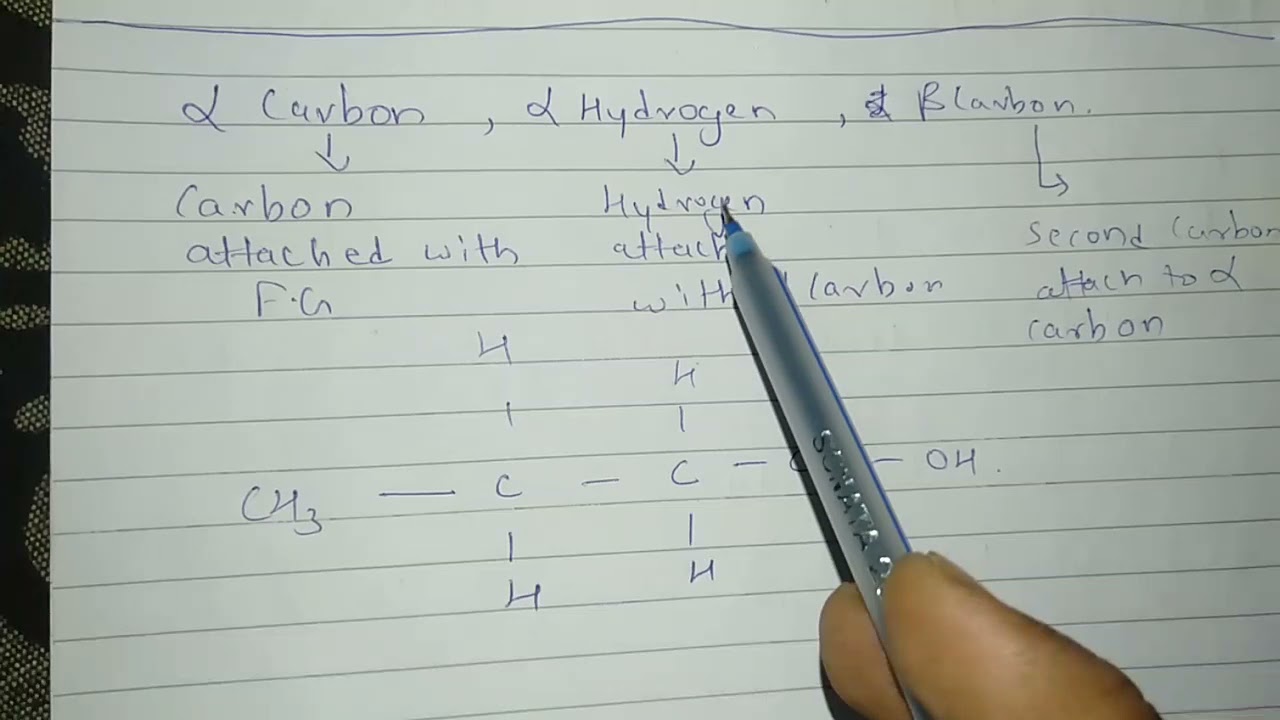 α Carbon , α Hydrogen , β Carbon.
↓ ↓ ↳
Carbon
attached with
F.G
Hydrogen
attach
with Carbon
second Carbon
attach to α
carbon
H
H
CH3 — C — C — — OH .
H
H
SONATA